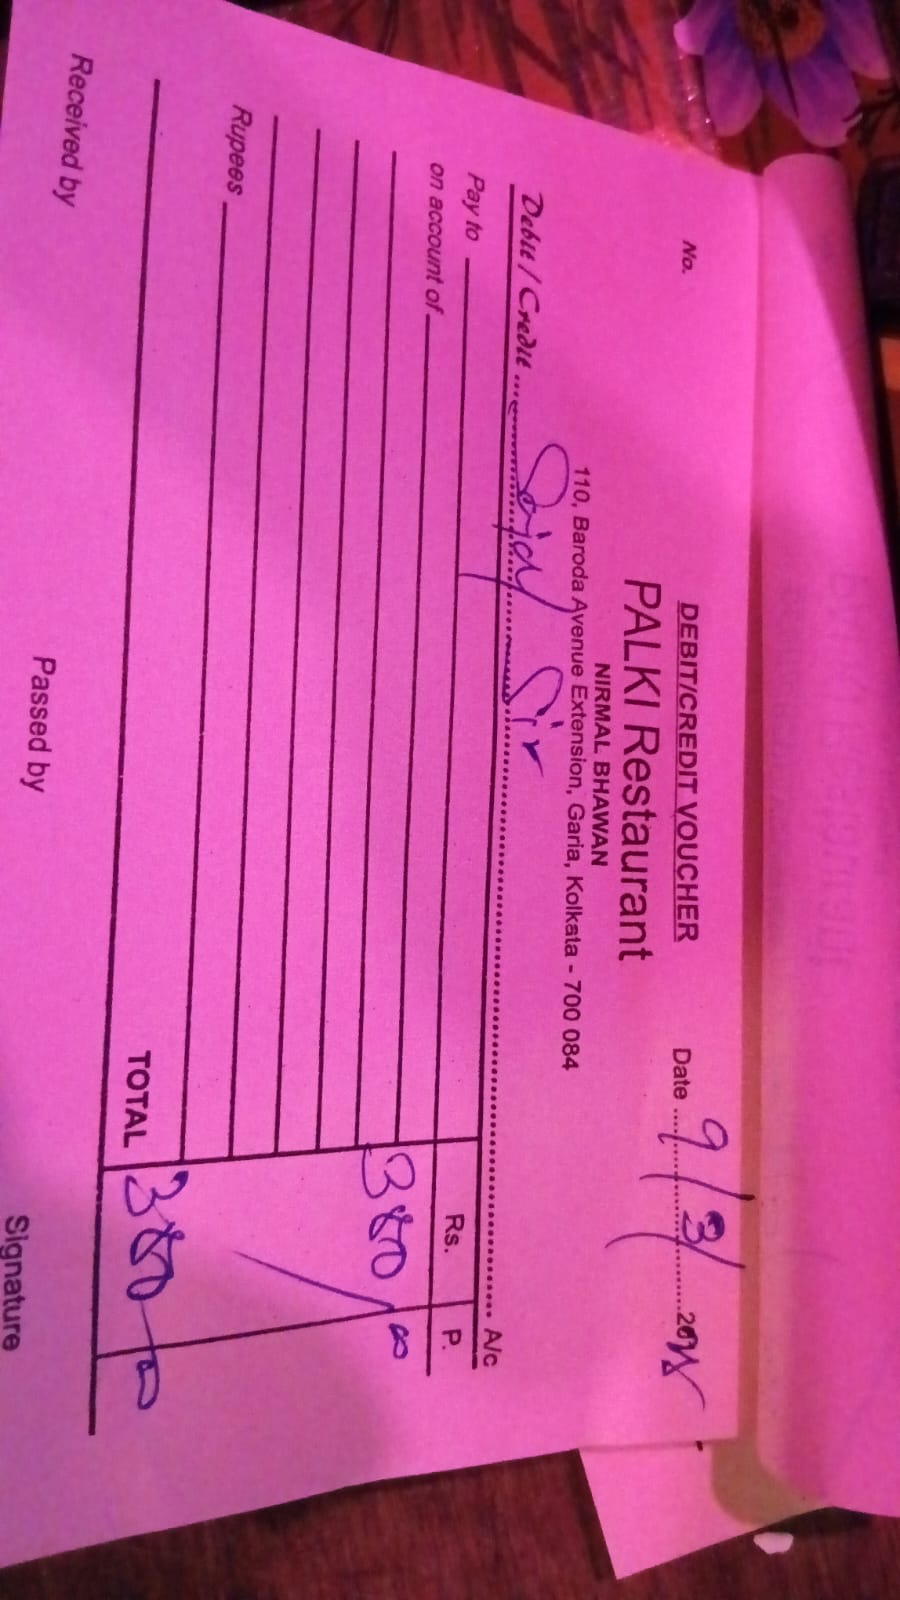 DEBIT/CREDIT VOUCHER
No.
Date 9/3/
PALKI Restaurant
NIRMAL BHAWAN
110, Baroda Avenue Extension, Garia, Kolkata - 700 084
Debit / Credit Sir A/c
Pay to
on account of
Rs. P.
380/ 00
Rupees
TOTAL 380 00
Received by
Passed by
Signature